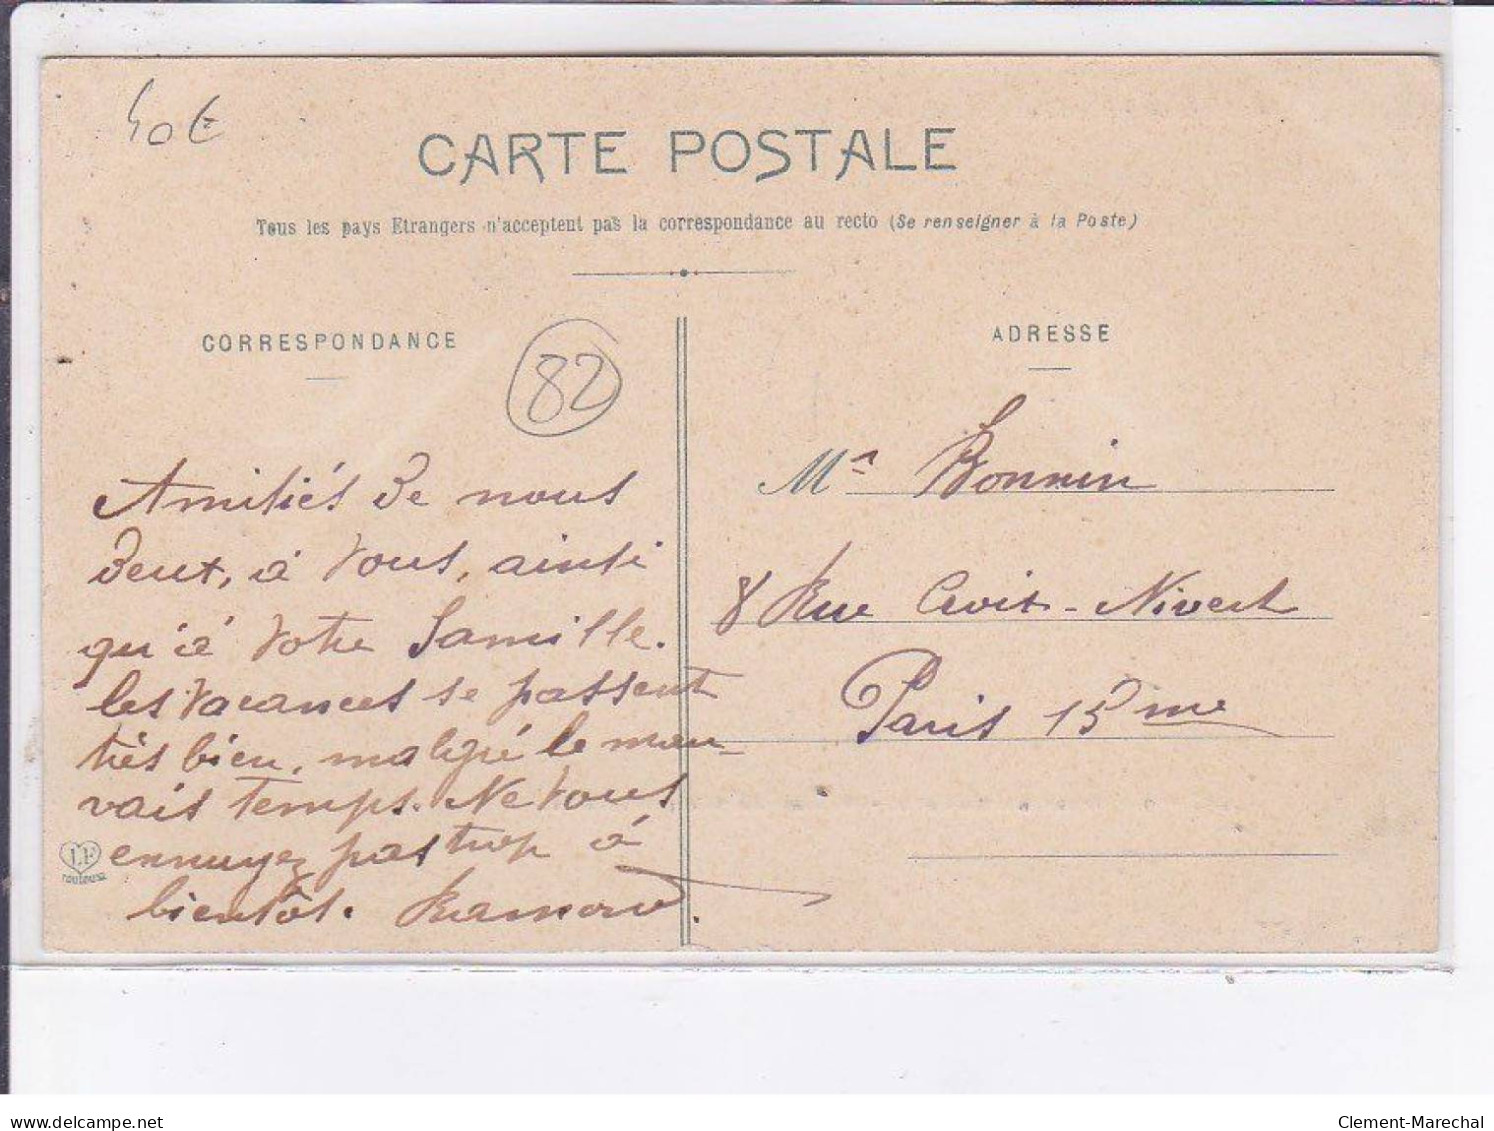 40€
CARTE POSTALE
Tous les pays Etrangers n'acceptent pas la correspondance au recto (Se renseigner à la Poste)
CORRESPONDANCE
82
Amitiés de nous
deux, à vous, ainsi
qu'à votre famille.
les vacances se passent
très bien, malgré le mau-
vais temps. Ne vous
ennuyez pas trop à
bientôt.
L.F
TOULOUSE
ADRESSE
Mr Bonnin
8 Rue Croix-Nivert
Paris 15me
delcampe.net
Clement-Marechal